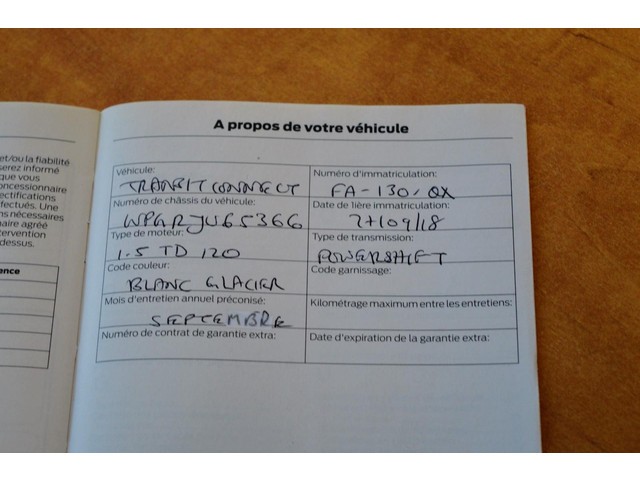 et/ou la fiabilité
serez informé
que vous
concessionnaire
ectifications
fectués. Une
ns nécessaires
naire agréé
tervention
dessus.
ence
A propos de votre véhicule
Véhicule:
TRANSIT CONNECT
Numéro d'immatriculation:
FA-130-QX
Numéro de châssis du véhicule:
WPGRJU65366
Date de 1ière immatriculation:
27/09/18
Type de moteur:
1.5 TD 120
Type de transmission:
POWERSHIFT
Code couleur:
BLANC GLACIER
Code garnissage:
Mois d'entretien annuel préconisé:
SEPTEMBRE
Kilométrage maximum entre les entretiens:
Numéro de contrat de garantie extra:
Date d'expiration de la garantie extra: